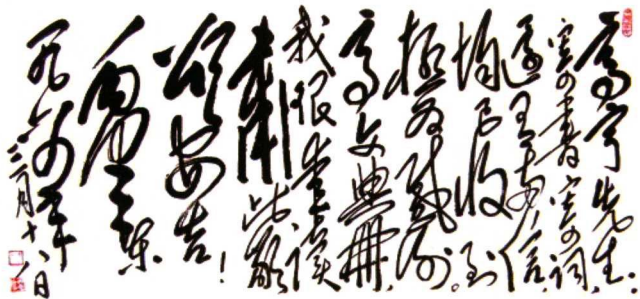 高亨先生:
寄的書、寄的词,
还有两信,
均已收到,
极为感谢。
高文典册,
我很爱读。
肃此敬
颂安吉!
毛泽东
一九六四年
三月十八日